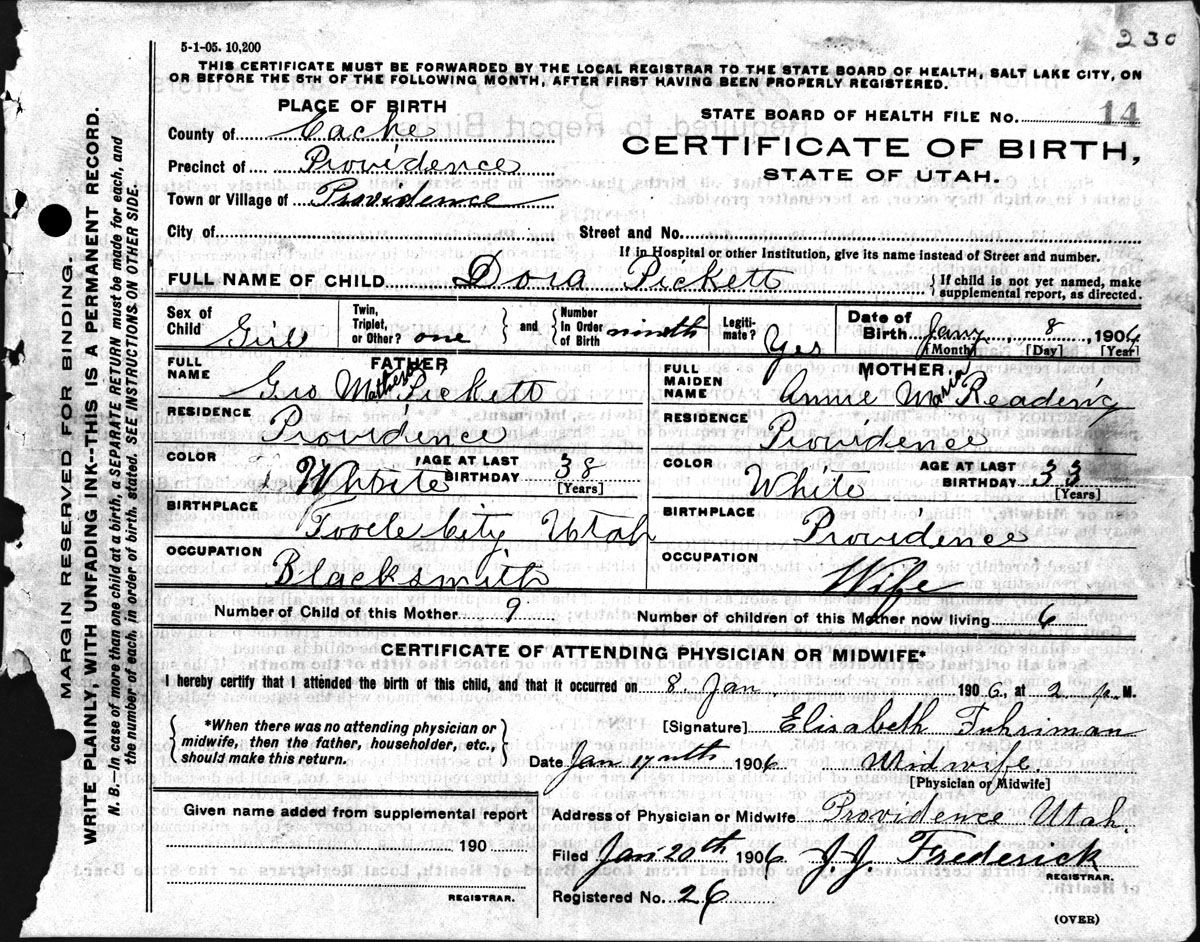 5-1-05. 10,200
230
THIS CERTIFICATE MUST BE FORWARDED BY THE LOCAL REGISTRAR TO THE STATE BOARD OF HEALTH, SALT LAKE CITY, ON
OR BEFORE THE 5TH OF THE FOLLOWING MONTH, AFTER FIRST HAVING BEEN PROPERLY REGISTERED.
PLACE OF BIRTH
STATE BOARD OF HEALTH FILE No. 14
County of Cache
CERTIFICATE OF BIRTH,
Precinct of Providence
STATE OF UTAH.
Town or Village of Providence
City of
Street and No.
If in Hospital or other Institution, give its name instead of Street and number.
FULL NAME OF CHILD Dora Pickett
{If child is not yet named, make
supplemental report, as directed.
Sex of Child Girl
Twin, Triplet, or Other? one } and { Number In Order of Birth ninth
Legiti- mate? Yes
Date of Birth Jany 8 1906
[Month] [Day] [Year]
FATHER
FULL NAME Geo Pickett
MOTHER
FULL MAIDEN NAME Annie Maria Reading
RESIDENCE Providence
RESIDENCE Providence
COLOR White
AGE AT LAST BIRTHDAY 38 [Years]
COLOR White
AGE AT LAST BIRTHDAY 33 [Years]
BIRTHPLACE Tooele City Utah
BIRTHPLACE Providence
OCCUPATION Blacksmith
OCCUPATION Wife
Number of Child of this Mother 9
Number of children of this Mother now living 6
CERTIFICATE OF ATTENDING PHYSICIAN OR MIDWIFE*
I hereby certify that I attended the birth of this child, and that it occurred on 8 Jan 1906, at 2 M.
{ *When there was no attending physician or
midwife, then the father, householder, etc.,
should make this return. }
[Signature] Elisabeth Fuhriman
Date Jan 17 1906 Midwife
[Physician or Midwife]
Given name added from supplemental report
190
REGISTRAR.
Address of Physician or Midwife Providence Utah.
Filed Jan 20th 1906 J. J. Frederick
REGISTRAR.
Registered No. 26
(OVER)
MARGIN RESERVED FOR BINDING.
WRITE PLAINLY, WITH UNFADING INK--THIS IS A PERMANENT RECORD.
N. B. In case of more than one child at a birth, a SEPARATE RETURN must be made for each, and
the number of each, in order of birth, stated. SEE INSTRUCTIONS ON OTHER SIDE.